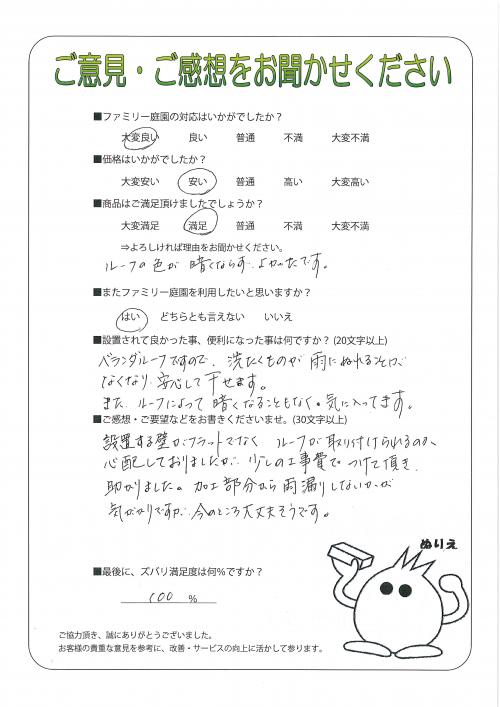 ご意見・ご感想をお聞かせください
■ファミリー庭園の対応はいかがでしたか？
大変良い 良い 普通 不満 大変不満
■価格はいかがでしたか？
大変安い 安い 普通 高い 大変高い
■商品はご満足頂けましたでしょうか？
大変満足 満足 普通 不満 大変不満
⇒よろしければ理由をお聞かせください。
ルーフの色が 暗くならず よかったです。
■またファミリー庭園を利用したいと思いますか？
はい どちらとも言えない いいえ
■設置されて良かった事、便利になった事は何ですか？(20文字以上)
ベランダルーフですので、洗たくものが 雨にぬれる
なくなり 安心して 干せます。
また、ルーフによって 暗くなることもなく。気に入ってます。
■ご感想・ご要望などをお書きくださいませ。(30文字以上)
設置する壁がフラットでなく ルーフが取り付けられるのか、
心配しておりましたが 少しの工事費で つけて頂き
助かりました。加工部分から雨漏りしないかが
気がかりですが 今のところ大丈夫そうです。
ぬりえ
■最後に、ズバリ満足度は何％ですか？
100 ％
ご協力頂き、誠にありがとうございました。
お客様の貴重な意見を参考に、改善・サービスの向上に活かして参ります。